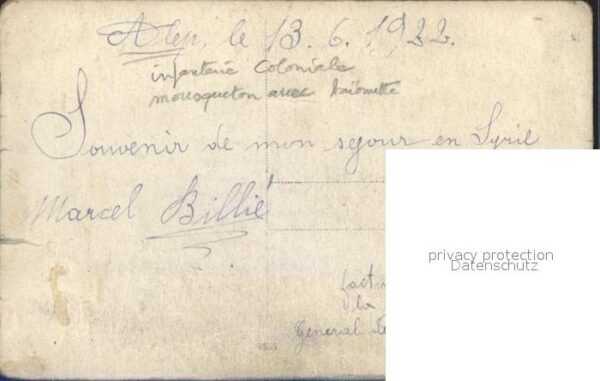 Alep, le 13.6.1922.
infanterie Coloniale
mousqueton avec baïonnette
Souvenir de mon sejour en Syrie
Marcel Billié
privacy protection
Datenschutz
la
General